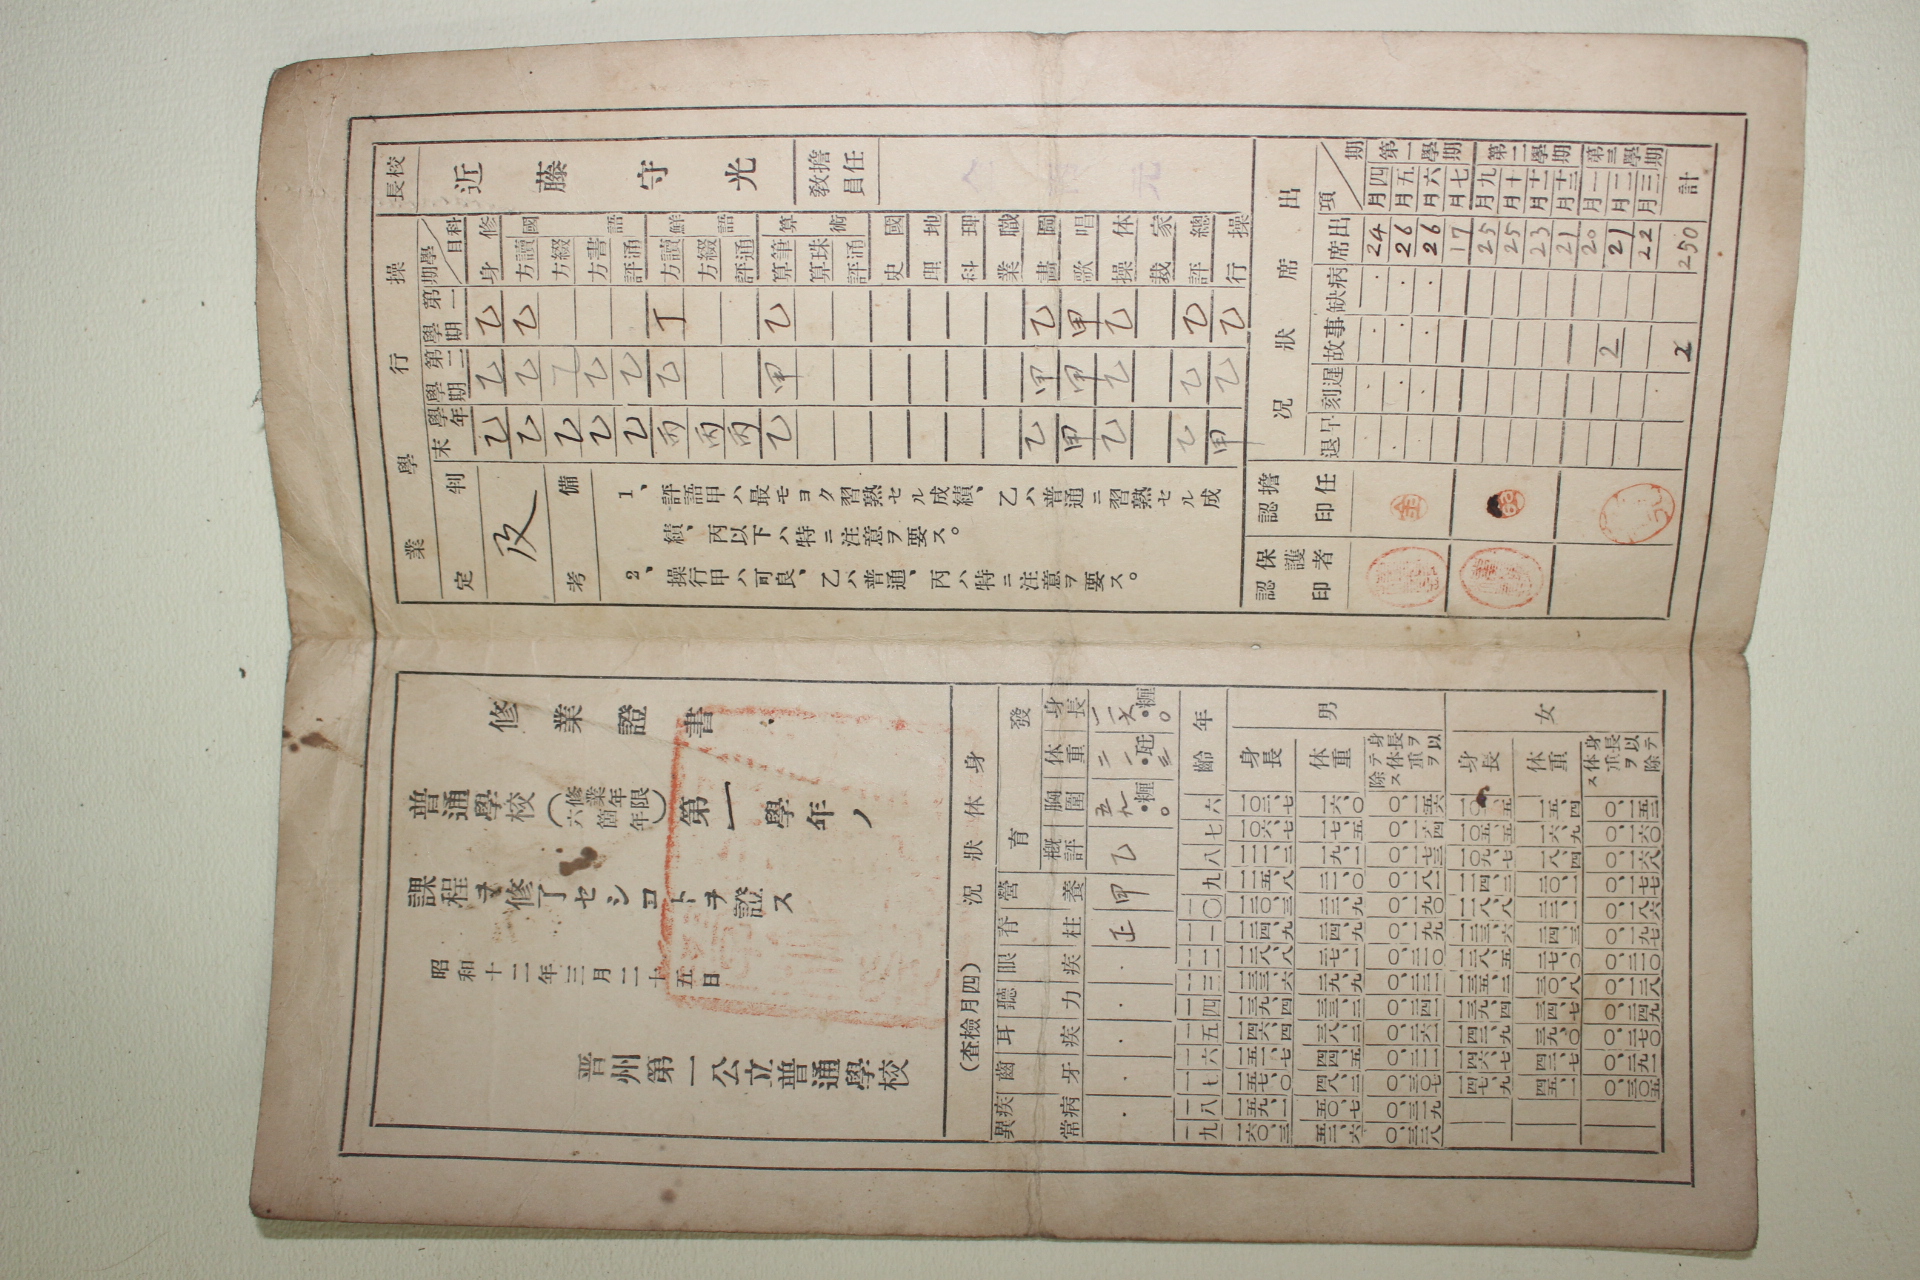 校長
近藤守光
擔任教員
操行學業
學期 科目
第一學期
第二學期
學年末
修身 乙 乙 乙
國語
讀方 乙 乙 乙
綴方 乙 乙
書方 乙 乙
通評 乙 乙
鮮語
讀方 丁 乙 丙
綴方 丙
通評 丙
算術
筆算 乙 甲 乙
珠算
通評
國史
地理
理科
職業
圖畫 乙 甲 乙
唱歌 甲 甲 甲
体操 乙 乙 乙
家裁
總評 乙 乙 乙
操行 乙 乙 甲
判定
及
備考
1、評語甲ハ最モヨク習熟セル成績、乙ハ普通ニ習熟セル成
績、丙以下ハ特ニ注意ヲ要ス。
2、操行甲ハ可良、乙ハ普通、丙ハ特ニ注意ヲ要ス。
出席狀况
期 項
出席 病缺 事故 遲刻 早退
第一學期
四月 24
五月 26
六月 26
七月 17
第二學期
九月 25
十月 25
十一月 23
十二月 21
第三學期
一月 20
二月 21 2
三月 22
計 250 2
擔任認印
金
保護者認印
修業證書
普通學校(修業年限六箇年)第一學年ノ
課程ヲ修了セシコトヲ證ス
昭和十二年三月二十五日
晋州第一公立普通學校
身体狀况(四月檢査)
發育
身長 一一六.0糎
体重 二一.三瓩
胸圍 五九.0糎
概評 乙
營養 甲
脊柱 正
眼疾
聽力
耳疾
齒牙
疾病異常
年齡 六 七 八 九 一〇 一一 一二 一三 一四 一五 一六 一七 一八 一九
男
身長 一〇二、七 一〇六、七 一一一、二 一一五、八 一二〇、三 一二四、九 一二八、八 一三三、六 一三九、四 一四六、四 一五一、七 一五七、〇 一五九、一 一六〇、三
体重 一六、〇 一七、五 一九、一 二一、〇 二二、九 二四、九 二七、一 二九、九 三三、二 三八、二 四四、五 四八、二 五〇、七 五二、六
身長ヲ以テ体重ヲ除ス 〇、一五六 〇、一六四 〇、一七三 〇、一八一 〇、一九〇 〇、一九九 〇、二一〇
女
身長
体重 一五、四 一六、九 一八、四 二〇、一 二二、一 二四、三 二七、〇 三〇、八 三四、七 三九、〇 四二、七 四五、一
身長以テ体重ヲ除ス 〇、一五二 〇、一六〇 〇、一六八 〇、一七七 〇、一八六 〇、一九七 〇、二一〇